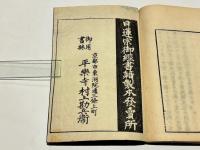 日蓮宗御經書籍製本發賣所
京都市東洞院通三條上町
御用書林
平樂寺村上勘兵衛